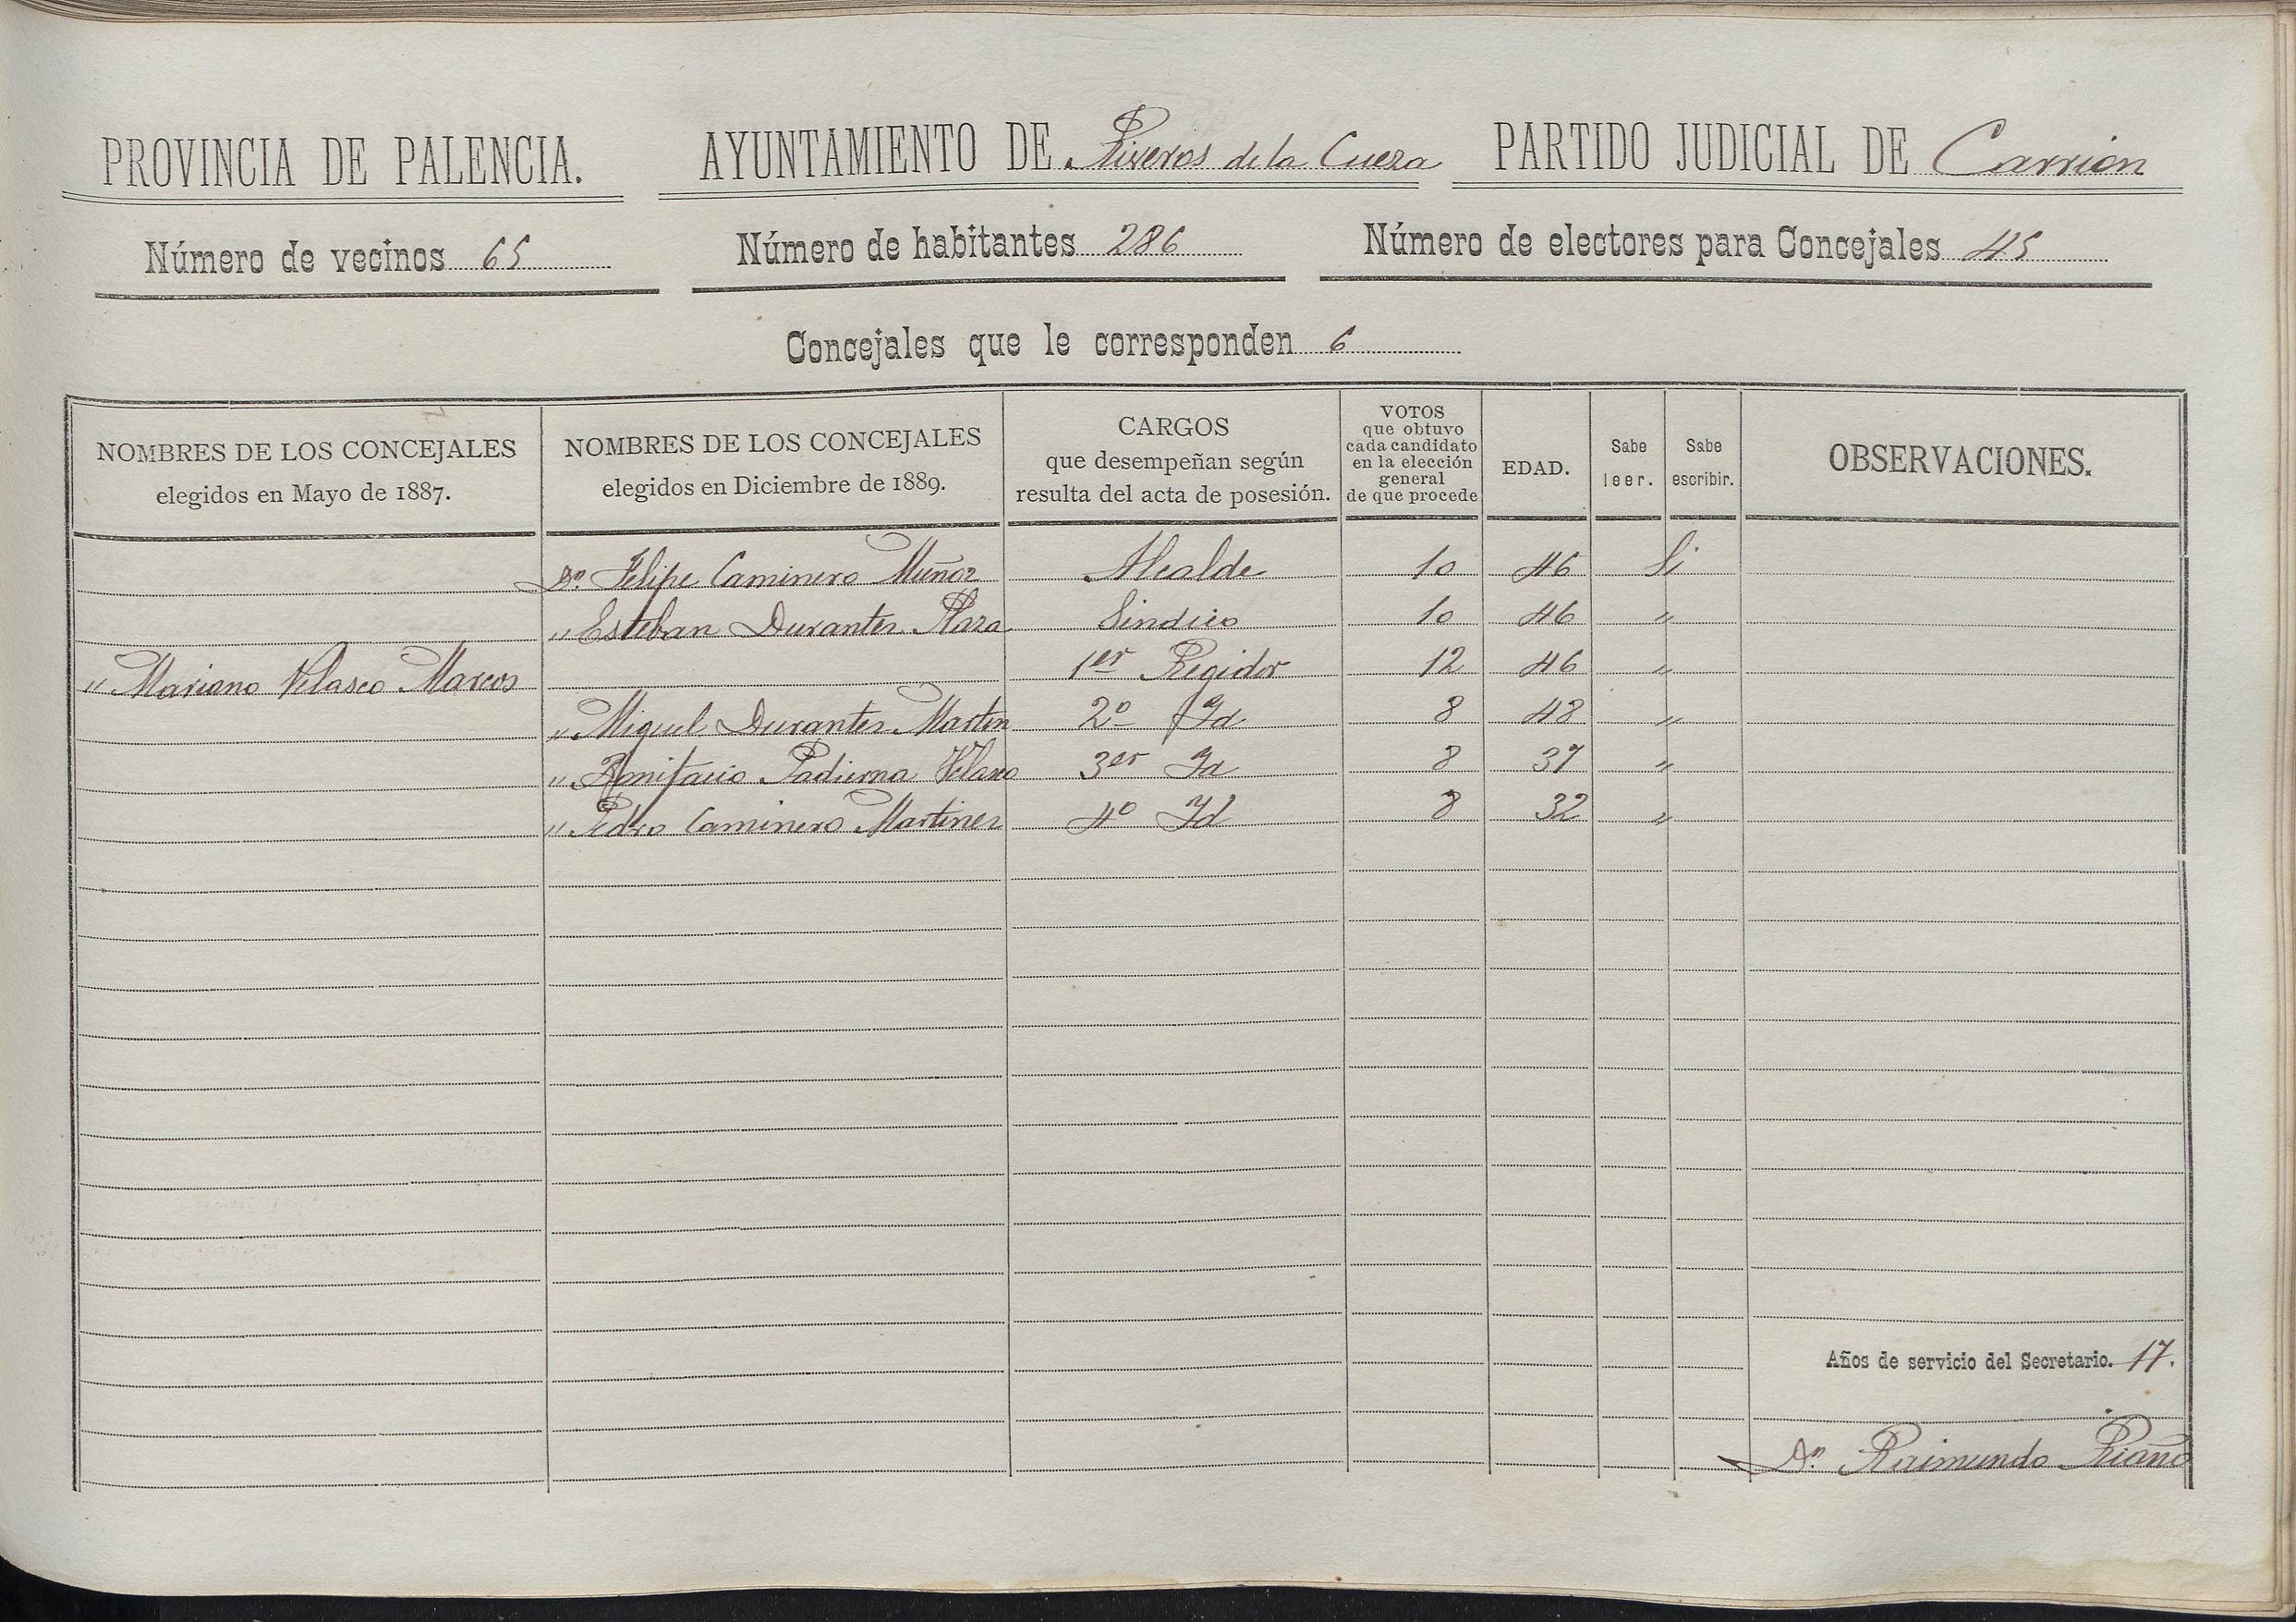 PROVINCIA DE PALENCIA. AYUNTAMIENTO DE Riveros de la Cueza PARTIDO JUDICIAL DE Carrión
Número de vecinos 65 Número de habitantes 286 Número de electores para Concejales 45
Concejales que le corresponden 6
NOMBRES DE LOS CONCEJALES
elegidos en Mayo de 1887.
NOMBRES DE LOS CONCEJALES
elegidos en Diciembre de 1889.
CARGOS
que desempeñan según
resulta del acta de posesión.
VOTOS
que obtuvo
cada candidato
en la elección
general
de que procede
EDAD.
Sabe
leer.
Sabe
escribir.
OBSERVACIONES.
Dn. Felipe Caminero Muñoz Alcalde 10 46 Si
" Esteban Durantez Plaza Sindico 10 46 "
" Mariano Velasco Marcos 1er Regidor 12 46 "
" Miguel Durantez Martin 2o Id 8 48 "
" Bonifacio Padierna Velasco 3er Id 8 37 "
" Pedro Caminero Martinez 4o Id 8 32 "
Años de servicio del Secretario. 17.
Dn. Raimundo Riaño